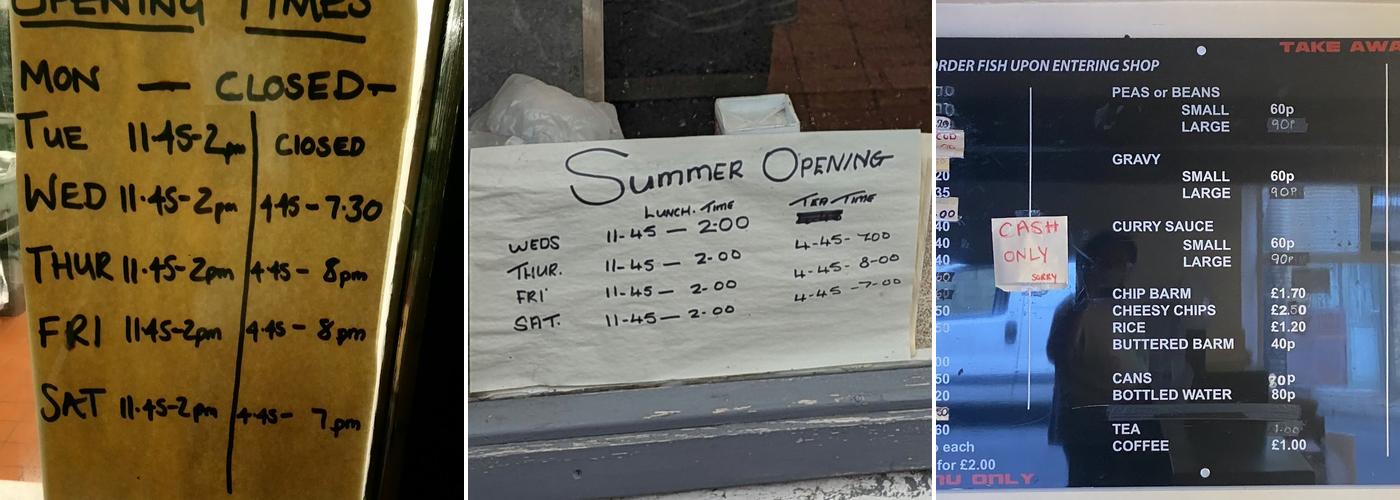 OPENING TIMES
MON — CLOSED —
TUE 11.45-2pm CLOSED
WED 11.45-2pm 4.45-7.30
THUR 11.45-2pm 4.45- 8pm
FRI 11.45-2pm 4.45- 8pm
SAT 11.45-2pm 4.45- 7pm
SUMMER OPENING
LUNCH. TIME TEA TIME
WEDS 11-45 — 2:00
THUR. 11-45 — 2-00 4-45- 7.00
FRI 11-45 — 2-00 4-45- 8-00
SAT. 11-45 — 2-00 4-45 -7-00
TAKE AWA
ORDER FISH UPON ENTERING SHOP
PEAS or BEANS
SMALL 60p
LARGE 90P
GRAVY
SMALL 60p
LARGE 90P
CURRY SAUCE
SMALL 60p
LARGE 90P
CHIP BARM £1.70
CHEESY CHIPS £2.50
RICE £1.20
BUTTERED BARM 40p
CANS
BOTTLED WATER 80p
TEA 1.00
COFFEE £1.00
CASH
ONLY
SORRY
each
for £2.00
NU ONLY